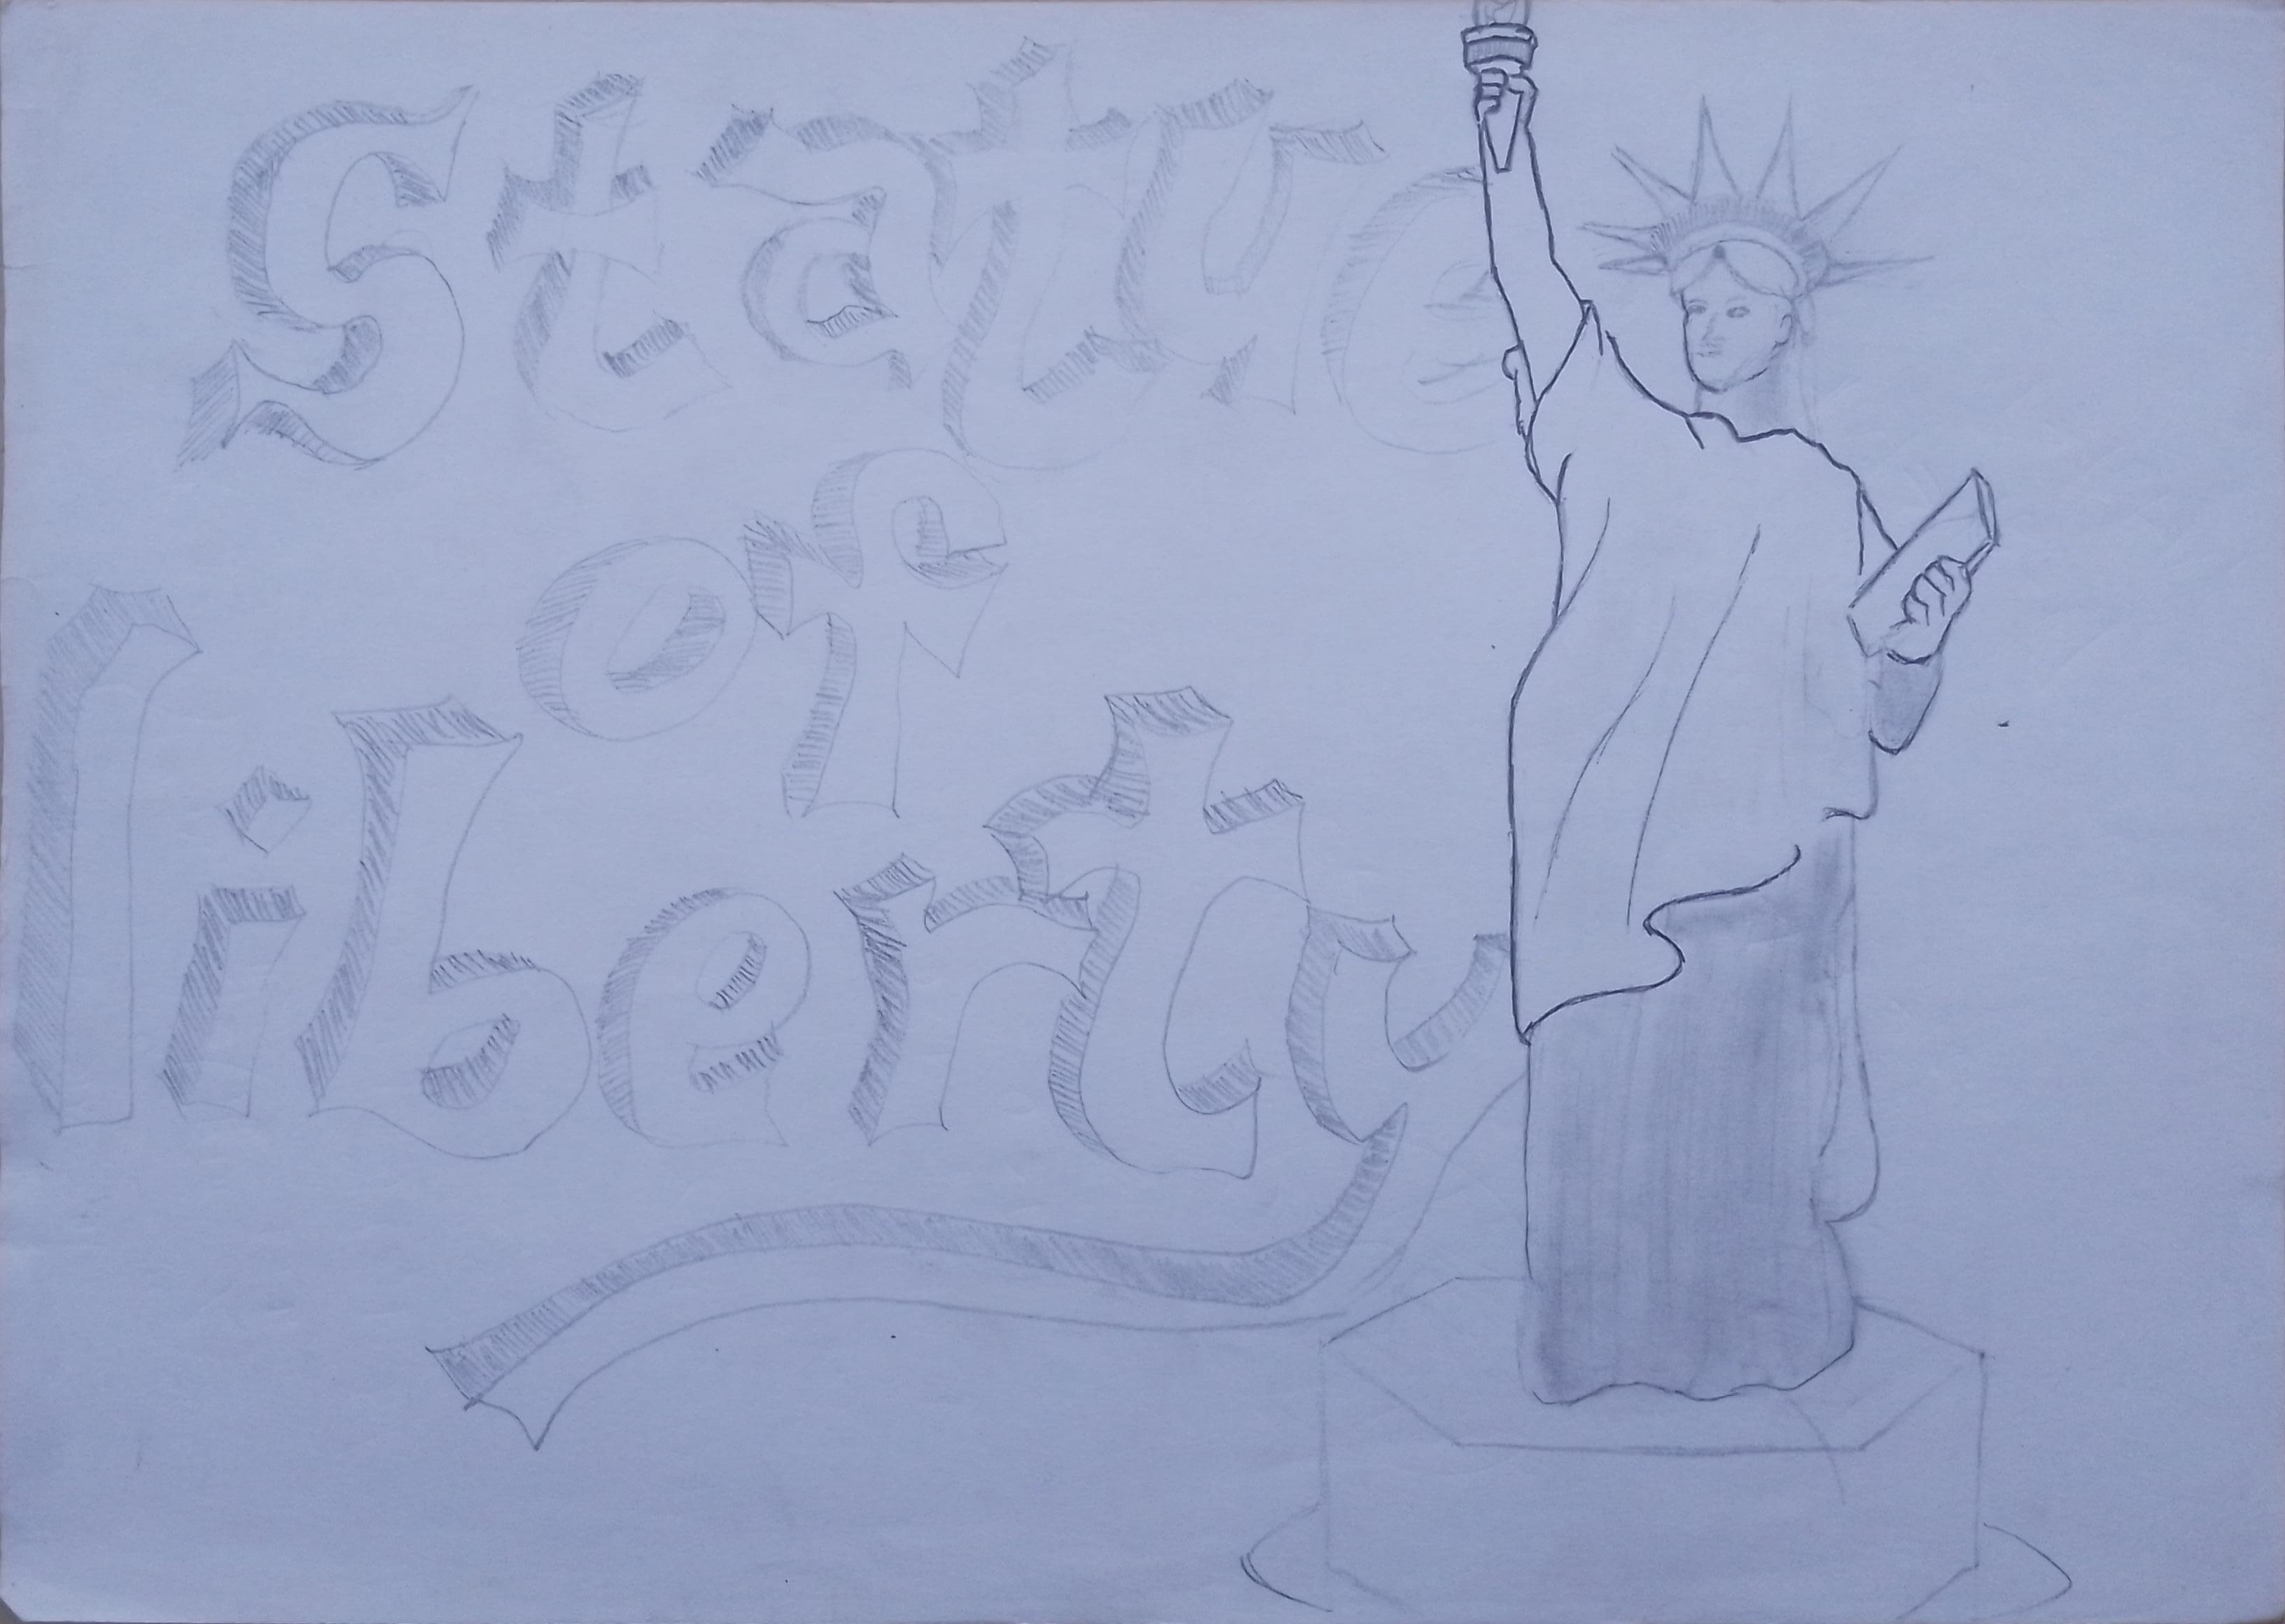 Statue
of
liberty